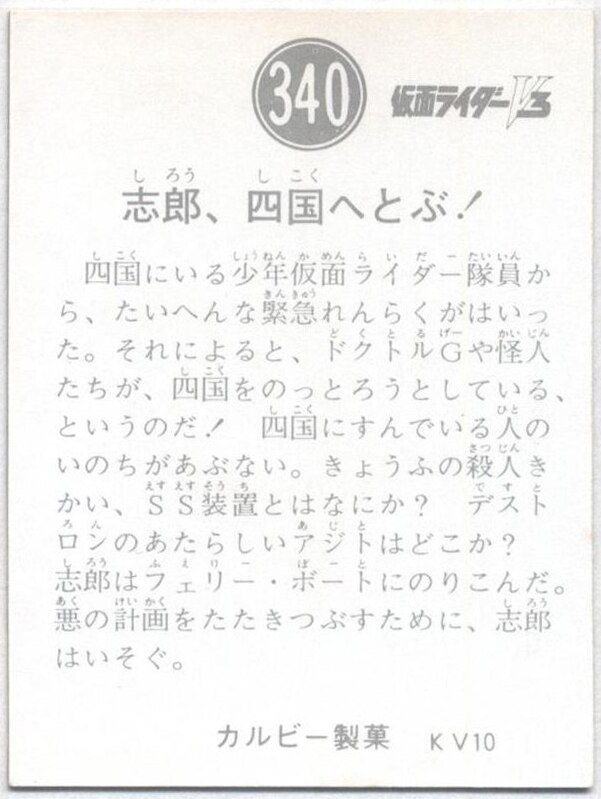 340
仮面ライダーV3
志郎、四国へとぶ!
四国にいる少年仮面ライダー隊員か
ら、たいへんな緊急れんらくがはいっ
た。それによると、ドクトルGや怪人
たちが、四国をのっとろうとしている、
というのだ! 四国にすんでいる人の
いのちがあぶない。きょうふの殺人き
かい、SS装置とはなにか? デスト
ロンのあたらしいアジトはどこか?
志郎はフェリー・ボートにのりこんだ。
悪の計画をたたきつぶすために、志郎
はいそぐ。
カルビー製菓 KV10